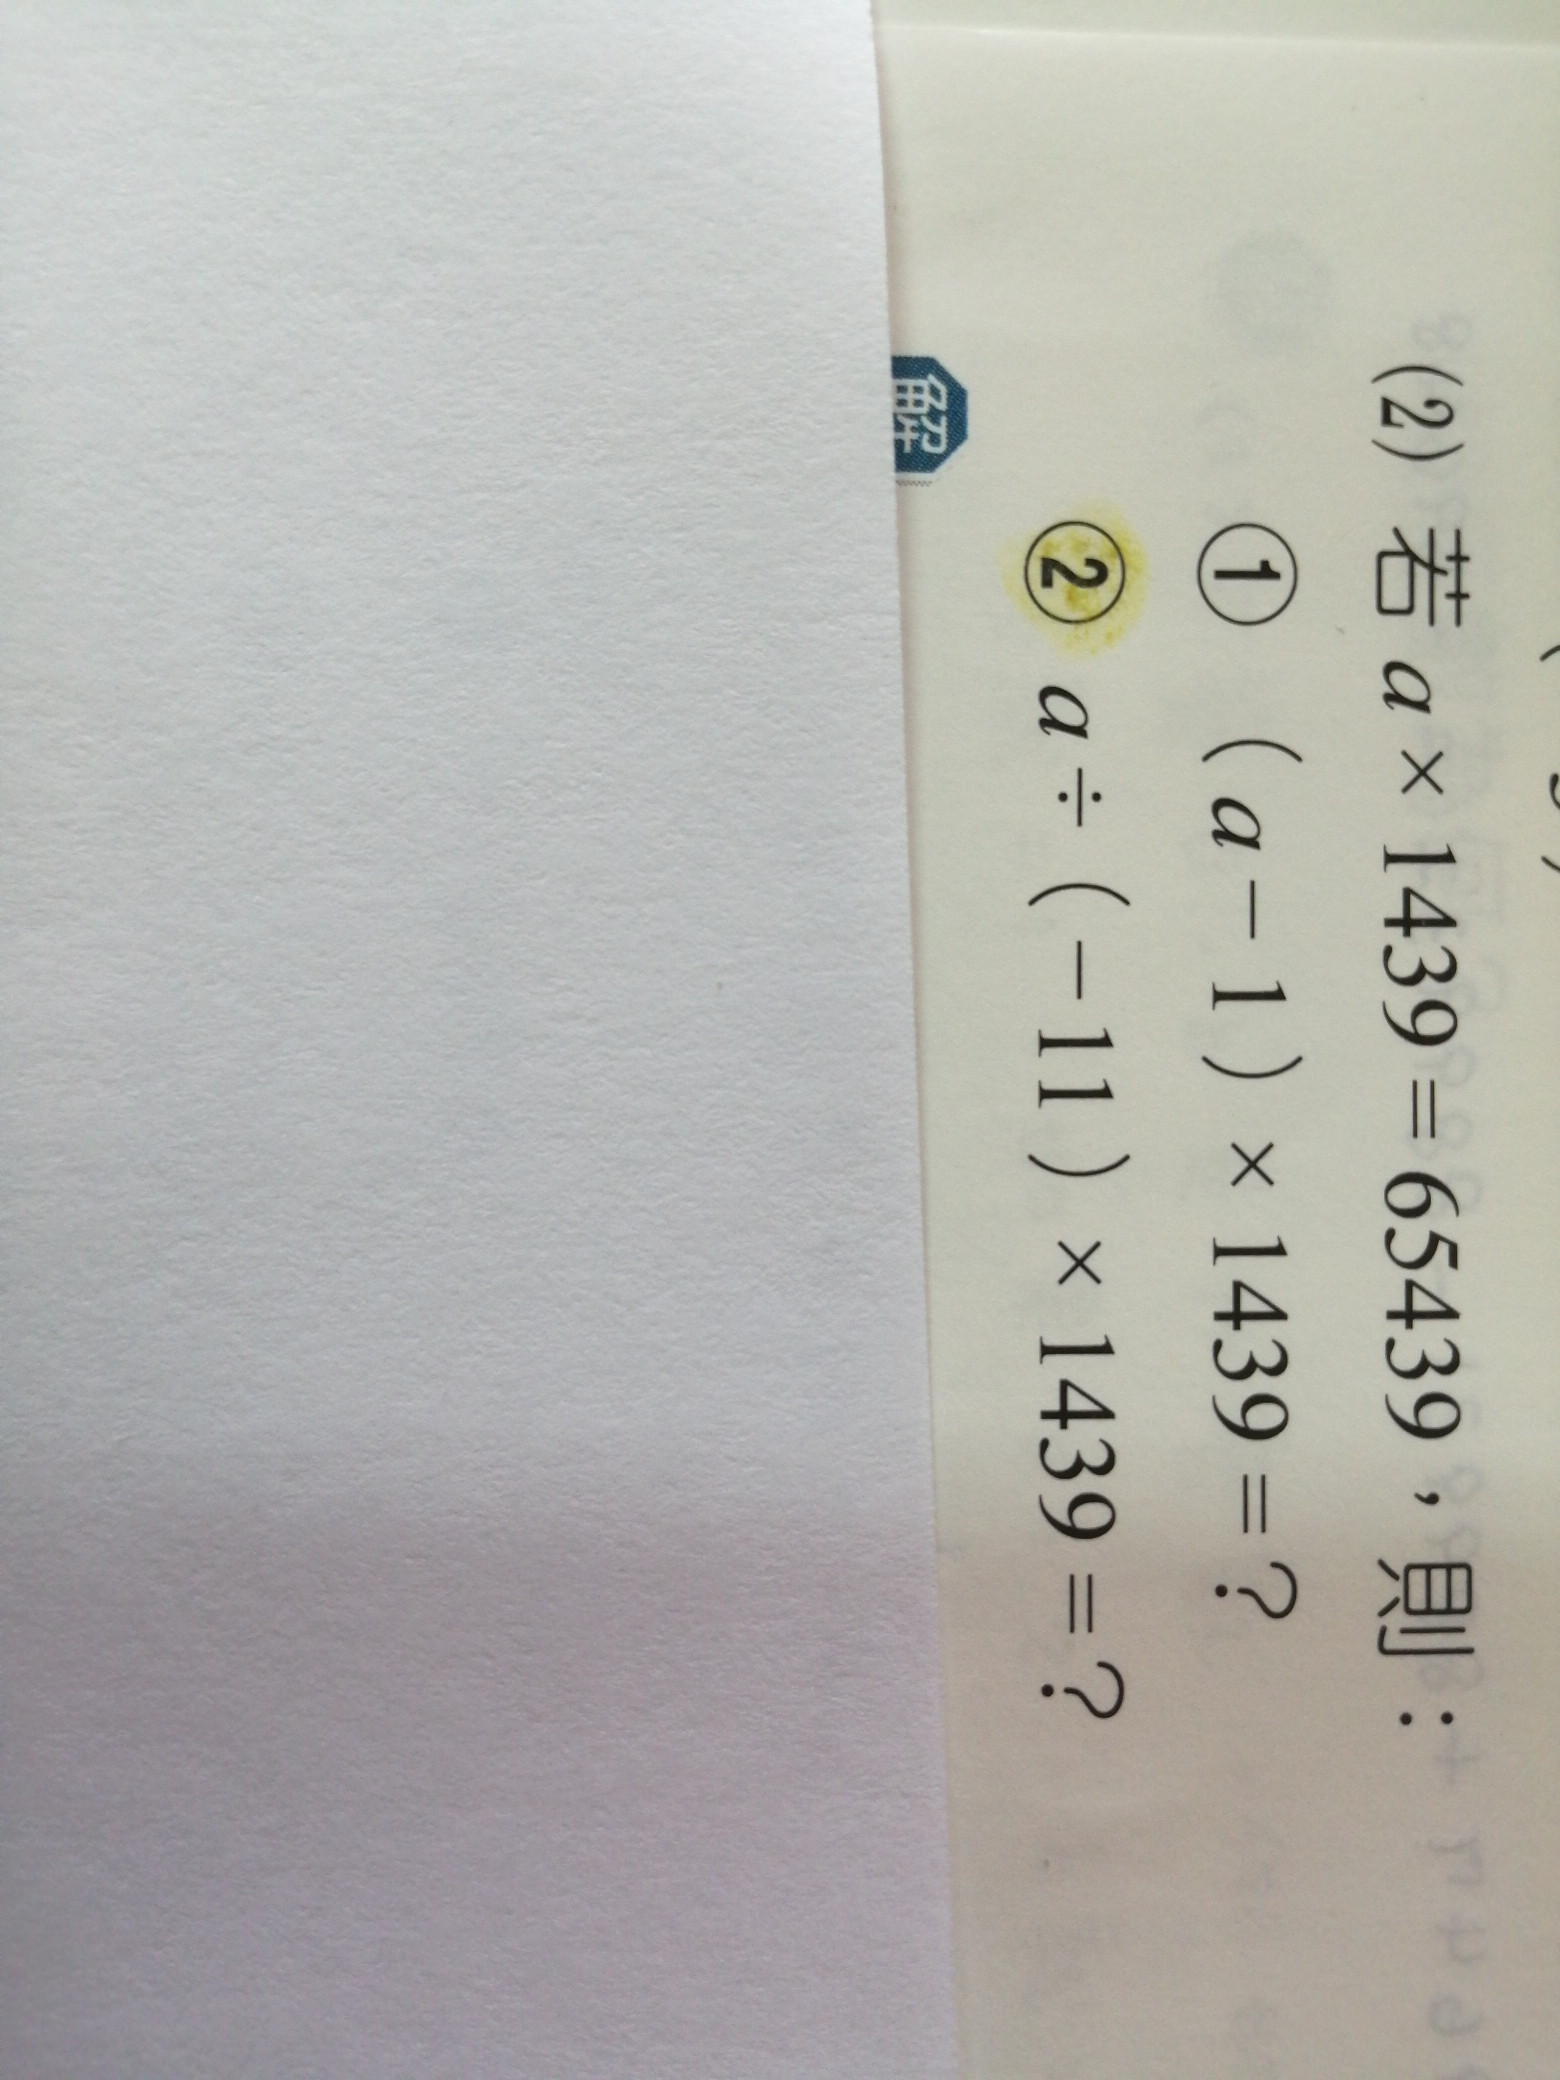 (2) 若 a × 1439 = 65439，則：
① (a－1) × 1439 = ？
② a ÷ (－11) × 1439 = ？
解